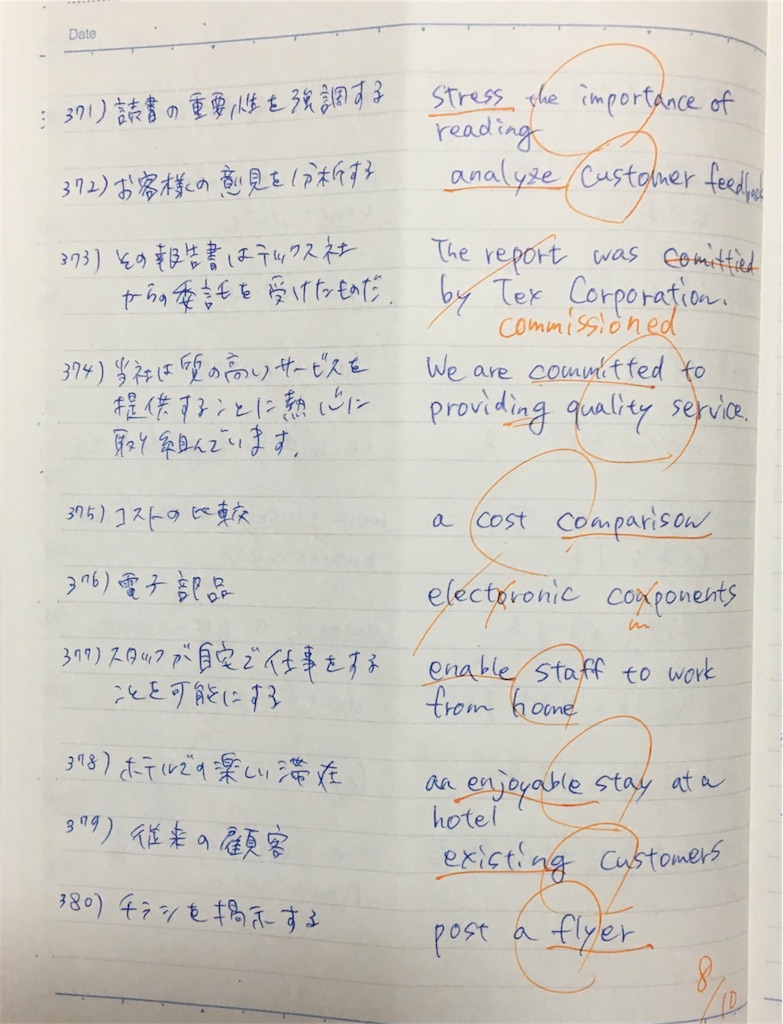 Date
371) 読書の重要性を強調する
stress the importance of
reading
372) お客様の意見を分析する
analyze customer feedback
373) その報告書はテックス社
からの委託を受けたものだ.
The report was comittied
by Tex Corporation.
commissioned
374) 当社は質の高いサービスを
提供することに熱心に
取り組んでいます.
We are committed to
providing quality service.
375) コストの比較
a cost comparison
376) 電子部品
electoronic conponents
m
377) スタッフが自宅で仕事をする
ことを可能にする
enable staff to work
from home
378) ホテルでの楽しい滞在
an enjoyable stay at a
hotel
379) 従来の顧客
existing customers
380) チラシを掲示する
post a flyer
8/10